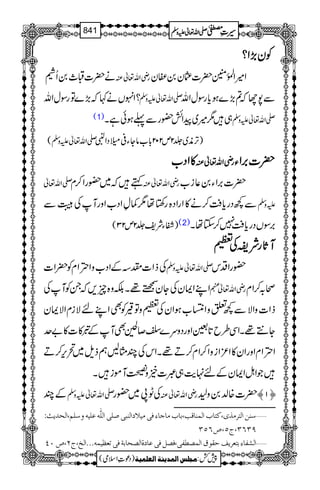 سیرتِ مصطفیٰ صلی اللہ تعالیٰ علیہ وسلم 841
کون بڑا؟
امیرالمؤمنین حضرت عثمان بن عفان رضی اللہ تعالیٰ عنہ نے حضرت قباث بن اُشیم
سے پوچھا کہ تم بڑے ہو یا رسول اللہ صلی اللہ تعالیٰ علیہ وسلم؟ انہوں نے کہا کہ بڑے تو رسول اللہ
صلی اللہ تعالیٰ علیہ وسلم ہی ہیں مگر میری پیدائش حضور سے پہلے ہوئی ہے۔ (1)
(ترمذی جلد۲ ص۲۰۲ باب ماجاء فی میلاد النبی صلی اللہ تعالیٰ علیہ وسلم)
حضرت براء رضی اللہ تعالیٰ عنہ کا ادب
حضرت براء بن عازب رضی اللہ تعالیٰ عنہ کہتے ہیں کہ میں حضور اکرم صلی اللہ تعالیٰ
علیہ وسلم سے کچھ دریافت کرنے کا ارادہ رکھتا تھا مگر کمال ادب اور آپ کی ہیبت سے
برسوں دریافت نہیں کر سکتا تھا۔ (2) (شفاء شریف جلد۲ ص۳۲)
آثار شریفہ کی تعظیم
حضور اقدس صلی اللہ تعالیٰ علیہ وسلم کی ذات مقدسہ کے ادب و احترام کو حضرات
صحابہ کرام رضی اللہ تعالیٰ عنہم اپنے ایمان کی جان سمجھتے تھے۔ بلکہ وہ چیزیں کہ جن کو آپ کی
ذات والا سے کچھ تعلق و انتساب ہو ان کی تعظیم و توقیر کو بھی اپنے لئے لازم الایمان
جانتے تھے۔ اسی طرح تابعین اور دوسرے سلف صالحین بھی آپ کے تبرکات کا بے حد
احترام اور ان کا اعزاز و اکرام کرتے تھے۔ اس کی چند مثالیں ہم ذیل میں تحریر کرتے
ہیں جو اہل ایمان کے لئے نہایت ہی عبرت خیز و نصیحت آموز ہیں۔
﴿۱﴾ حضرت خالد بن ولید رضی اللہ تعالیٰ عنہ کی ٹوپی میں حضور صلی اللہ تعالیٰ علیہ وسلم کے چند
1 ......سنن الترمذی، کتاب المناقب، باب ماجاء فی میلادالنبی صلی اللہ علیہ و سلم، الحدیث:
۳۶۳۹، ج۵، ص۳۵۶
2 ......الشفاء بتعریف حقوق المصطفی، فصل فی عادةالصحابة فی تعظیمه...الخ، ج۲، ص۴۰
پیش کش: مجلس المدینة العلمیة (دعوتِ اسلامی)